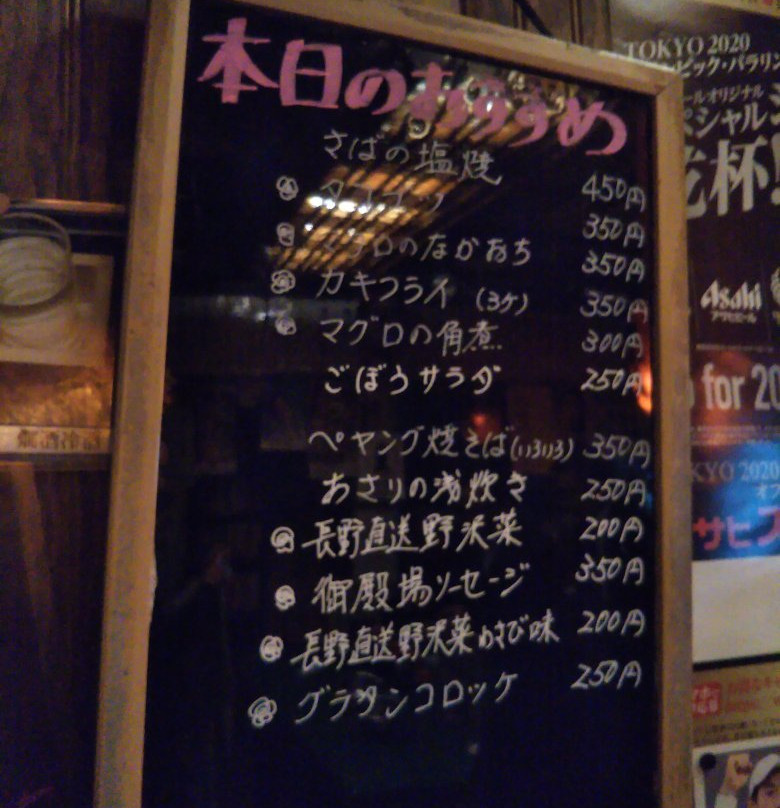 本日のおすすめ
さばの塩焼 450円
350円
マグロのなかおち 350円
カキフライ (3ケ) 350円
マグロの角煮 300円
ごぼうサラダ 250円
ペヤング焼きば(いろいろ) 350円
あさりの浅炊き 250円
長野直送野沢菜 200円
御殿場ソーセージ 350円
長野直送野沢菜わさび味 200円
グラタンコロッケ 250円
TOKYO 2020
ピック・パラリン
ールオリジナル
ペシャル
杯!
Asahi
アサヒビール
for 20
KYO 2020
オフ
サヒ